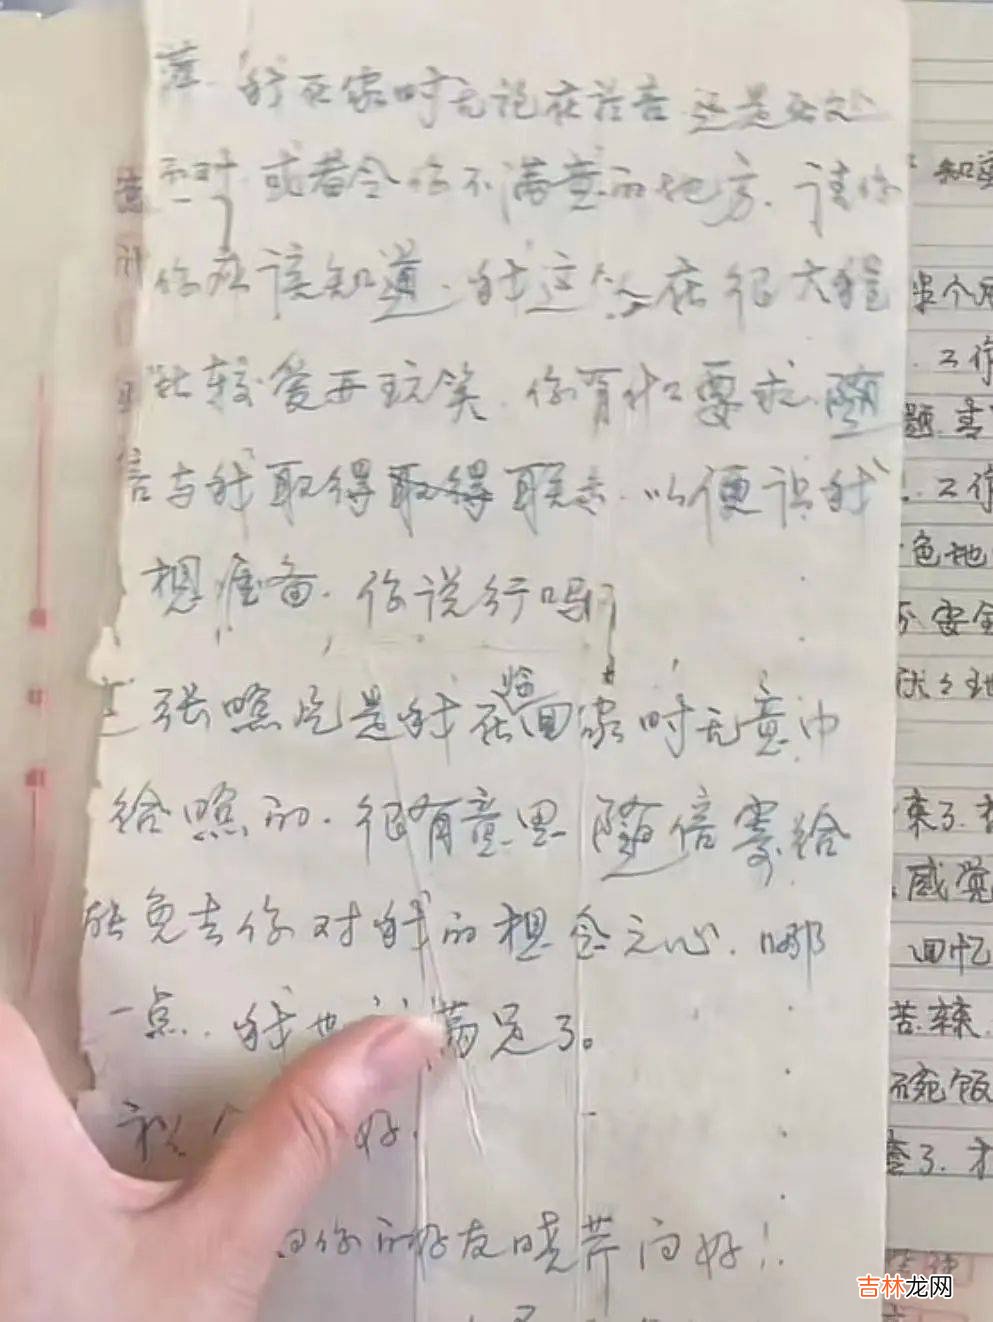 萍.我在家时无论在语言还是在处
和对.或者令你不满意的地方.请你
你应该知道.我这个人在很大程
比较爱开玩笑.你有什么要求.随
信与我取得取得联系.以便让我
想准备.你说行吗
这张照片是我在临回家时无意中
给照的.很有意思随信寄给
能免去你对我的想念之心.哪
一点.我也 满足了。
祝你 好.
向你的好友晓芹问好!
知道
半个月
.工作
题.
.工作
色地
安全
来了.
感觉
回忆
苦.辣.
碗饭
了.才
吉林龙网